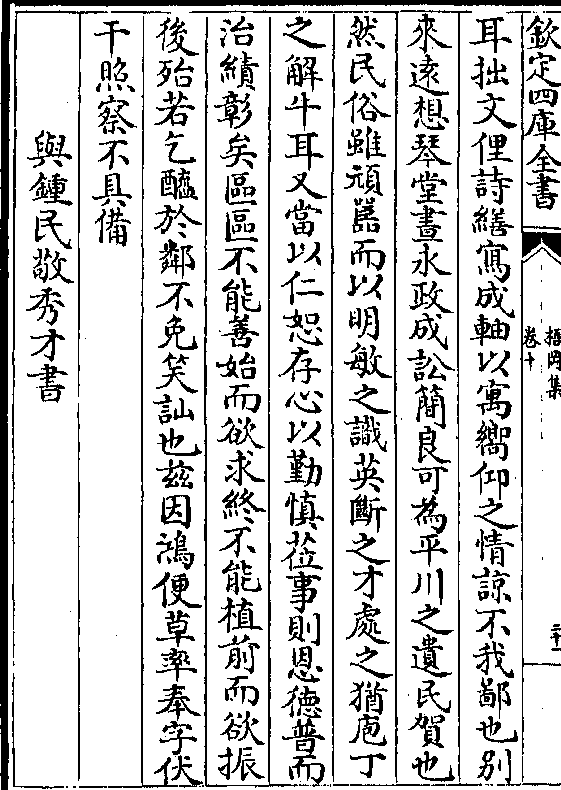 欽定四庫全書
梧岡集
卷十
二十一
耳拙文俚詩繕寫成軸以寓嚮仰之情諒不我鄙也别
來遠想琴堂晝永政成訟簡良可為平川之遺民賀也
然民俗雖頑嚚而以明敏之識英斷之才處之猶庖丁
之解牛耳又當以仁恕存心以勤慎莅事則恩德普而
治績彰矣區區不能善始而欲求終不能植前而欲振
後殆若乞醯於鄰不免笑訕也兹因鴻便草率奉字伏
干照察不具備
與鍾民敬秀才書